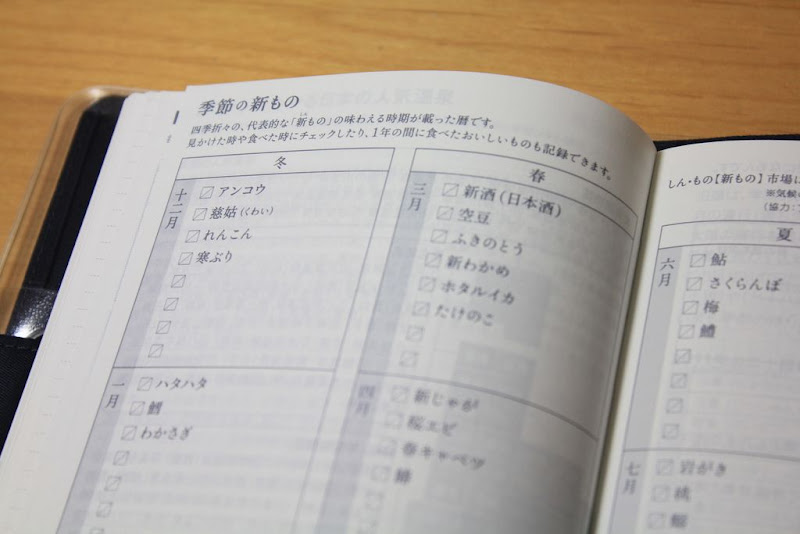 季節の新もの
四季折々の、代表的な「新もの」の味わえる時期が載った暦です。
見かけた時や食べた時にチェックしたり、1年の間に食べたおいしいものも記録できます。
冬
十二月
アンコウ
慈姑(くわい)
れんこん
寒ぶり
一月
ハタハタ
鱈
わかさぎ
春
三月
新酒(日本酒)
空豆
ふきのとう
新わかめ
ホタルイカ
たけのこ
四月
新じゃが
桜エビ
春キャベツ
しん・もの【新もの】市場に
※気候
(協力:
夏
六月
鮎
さくらんぼ
梅
鱧
七月
岩がき
桃